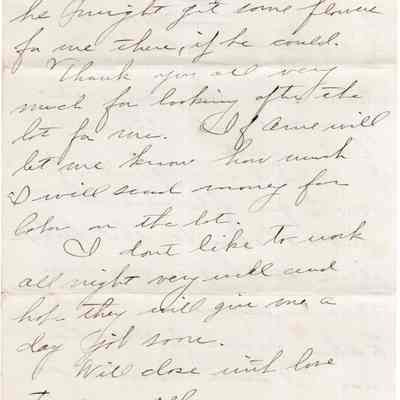 he might get some flowers
for me there, if he could.
Thank you all very
much for looking after the
lot for me. If Arne will
let me know how much
I will send money for
labor on the lot.
I dont like to work
all night very well and
hope they will give me a
day job soon.
Will close with love
to you all